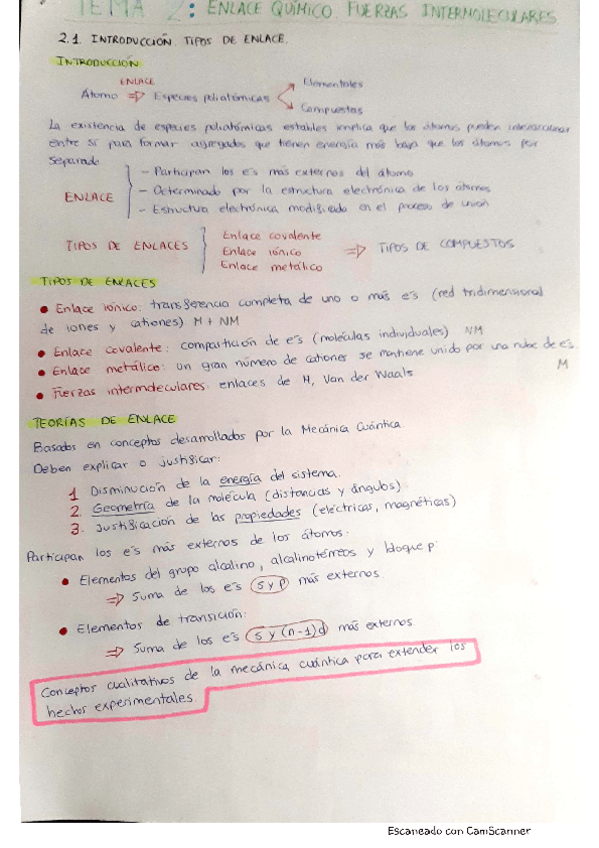 TEMA 2: ENLACE QUÍMICO FUERZAS INTERMOLECULARES
2.1. INTRODUCCIÓN. TIPOS DE ENLACE.
INTRODUCCIÓN
ENLACE
Átomo ⇒ Especies poliatómicas
Elementales
Compuestas
La existencia de especies poliatómicas estables implica que los átomos pueden interaccionar
entre sí para formar agregados que tienen energía más baja que los átomos por
separado
ENLACE
- Participan los e⁻s más externos del átomo
- Determinado por la estructura electrónica de los átomos
- Estructura electrónica modificada en el proceso de unión
TIPOS DE ENLACES
Enlace covalente
Enlace iónico
Enlace metálico
⇒ TIPOS DE COMPUESTOS
TIPOS DE ENLACES
• Enlace iónico: transferencia completa de uno o más e⁻s (red tridimensional
de iones y cationes) M + NM
• Enlace covalente: compartición de e⁻s (moléculas individuales) NM
• Enlace metálico: un gran número de cationes se mantiene unido por una nube de e⁻s
M
• Fuerzas intermoleculares: enlaces de H, Van der Waals
TEORÍAS DE ENLACE
Basados en conceptos desarrollados por la Mecánica Cuántica.
Deben explicar o justificar:
1 Disminución de la energía del sistema.
2. Geometría de la molécula (distancias y ángulos)
3. Justificación de las propiedades (eléctricas, magnéticas)
Participan los e⁻s más externos de los átomos:
• Elementos del grupo alcalino, alcalinotérreos y bloque p:
⇒ Suma de los e⁻s s y p más externos
• Elementos de transición:
⇒ Suma de los e⁻s s y (n-1)d más externos
Conceptos cualitativos de la mecánica cuántica para extender los
hechos experimentales
Escaneado con CamScanner